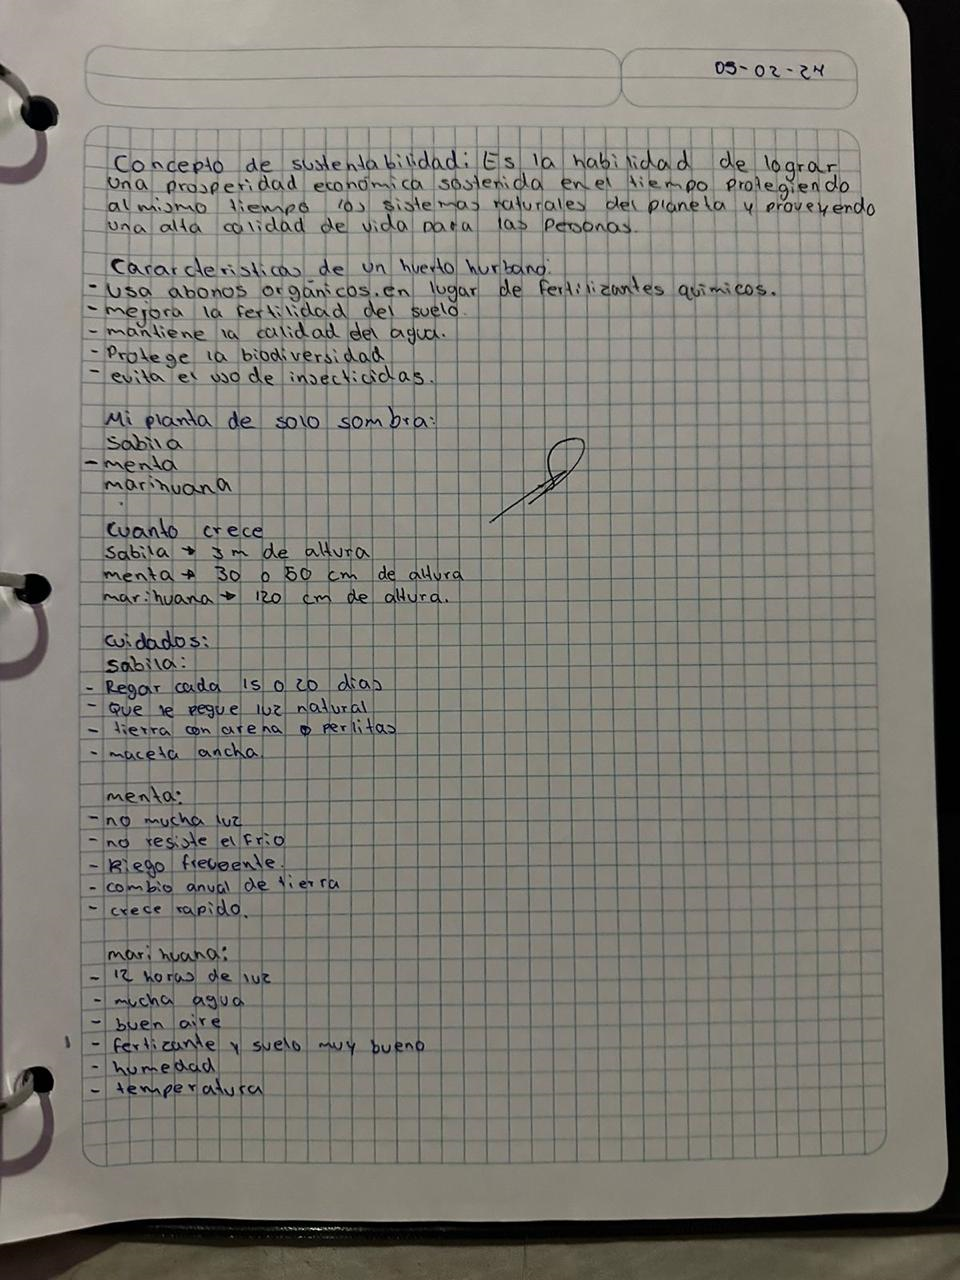 05-02-24
Concepto de sustentabilidad: Es la habilidad de lograr
una prosperidad económica sostenida en el tiempo protegiendo
al mismo tiempo los sistemas naturales del planeta y proveyendo
una alta calidad de vida para las personas.
Cararcteristicas de un huerto hurbano:
- Usa abonos orgánicos.en lugar de fertilizantes químicos.
- mejora la fertilidad del suelo.
- mantiene la calidad del agua.
- Protege la biodiversidad
- evita el uso de insecticidas.
Mi planta de solo sombra:
sabila
- menta
marihuana
cuanto crece
sabila → 3m de altura
menta → 30 o 50 cm de altura
marihuana → 120 cm de altura.
cuidados:
sabila:
- Regar cada 15 o 20 dias
- Que le pegue luz natural
- tierra con arena o perlitas
- maceta ancha.
menta:
- no mucha luz
- no resiste el frio
- Riego frecuente.
- combio anual de tierra
- crece rapido.
marihuana:
- 12 horas de luz
- mucha agua
- buen aire
- fertizante y suelo muy bueno
- humedad
- temperatura